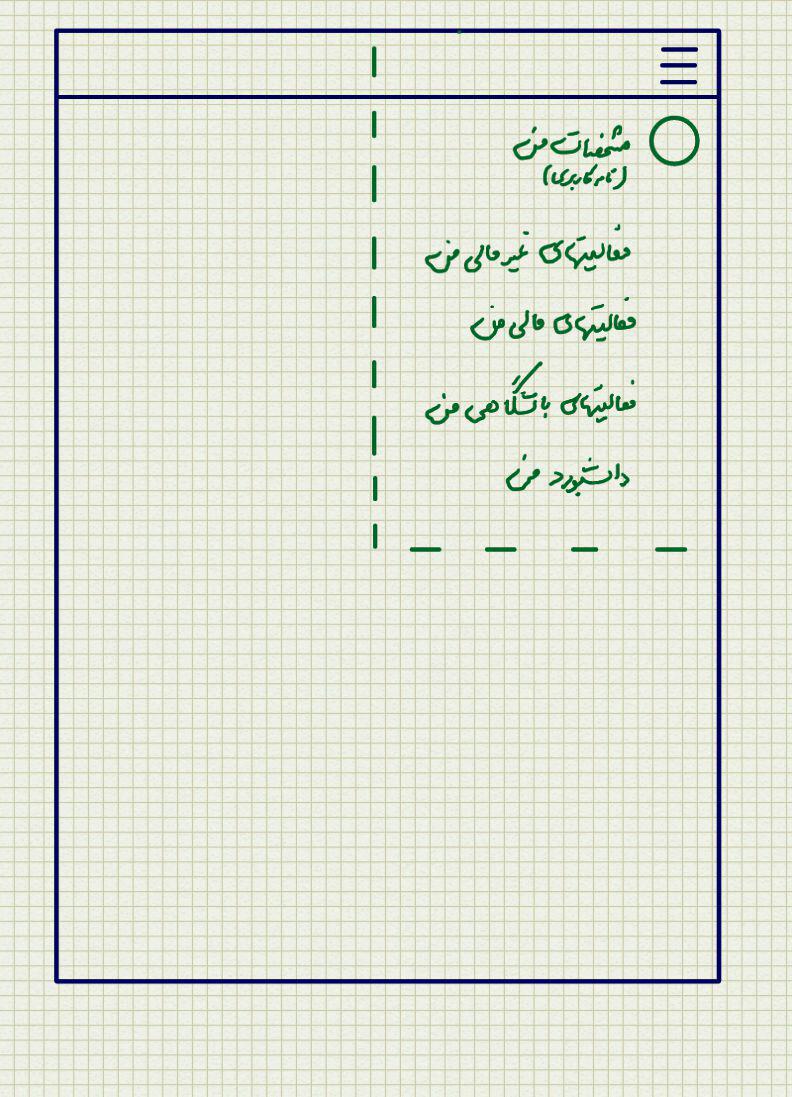 مشخصات من
(نام کاربری)
فعالیتهای غیر مالی من
فعالیتهای مالی من
فعالیتهای باشگاهی من
داشبورد من